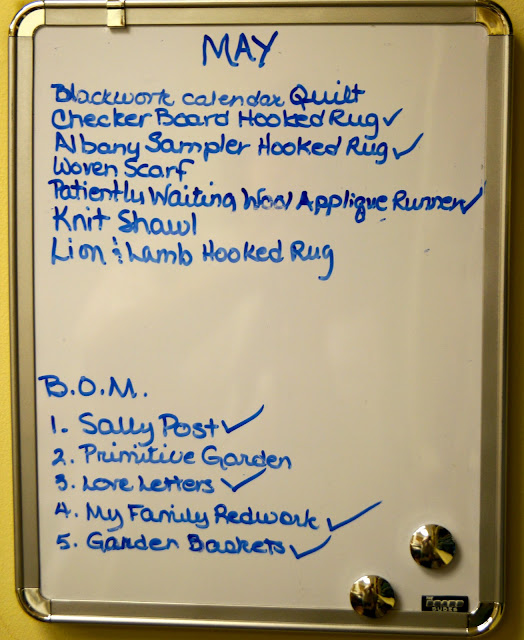 MAY
Blackwork calendar Quilt
Checker Board Hooked Rug ✓
Albany Sampler Hooked Rug ✓
Woven Scarf
Patiently Waiting Wool Applique Runner ✓
Knit Shawl
Lion & Lamb Hooked Rug
B.O.M.
1. Sally Post ✓
2. Primitive Garden
3. Love Letters ✓
4. My Family Redwork ✓
5. Garden Baskets ✓